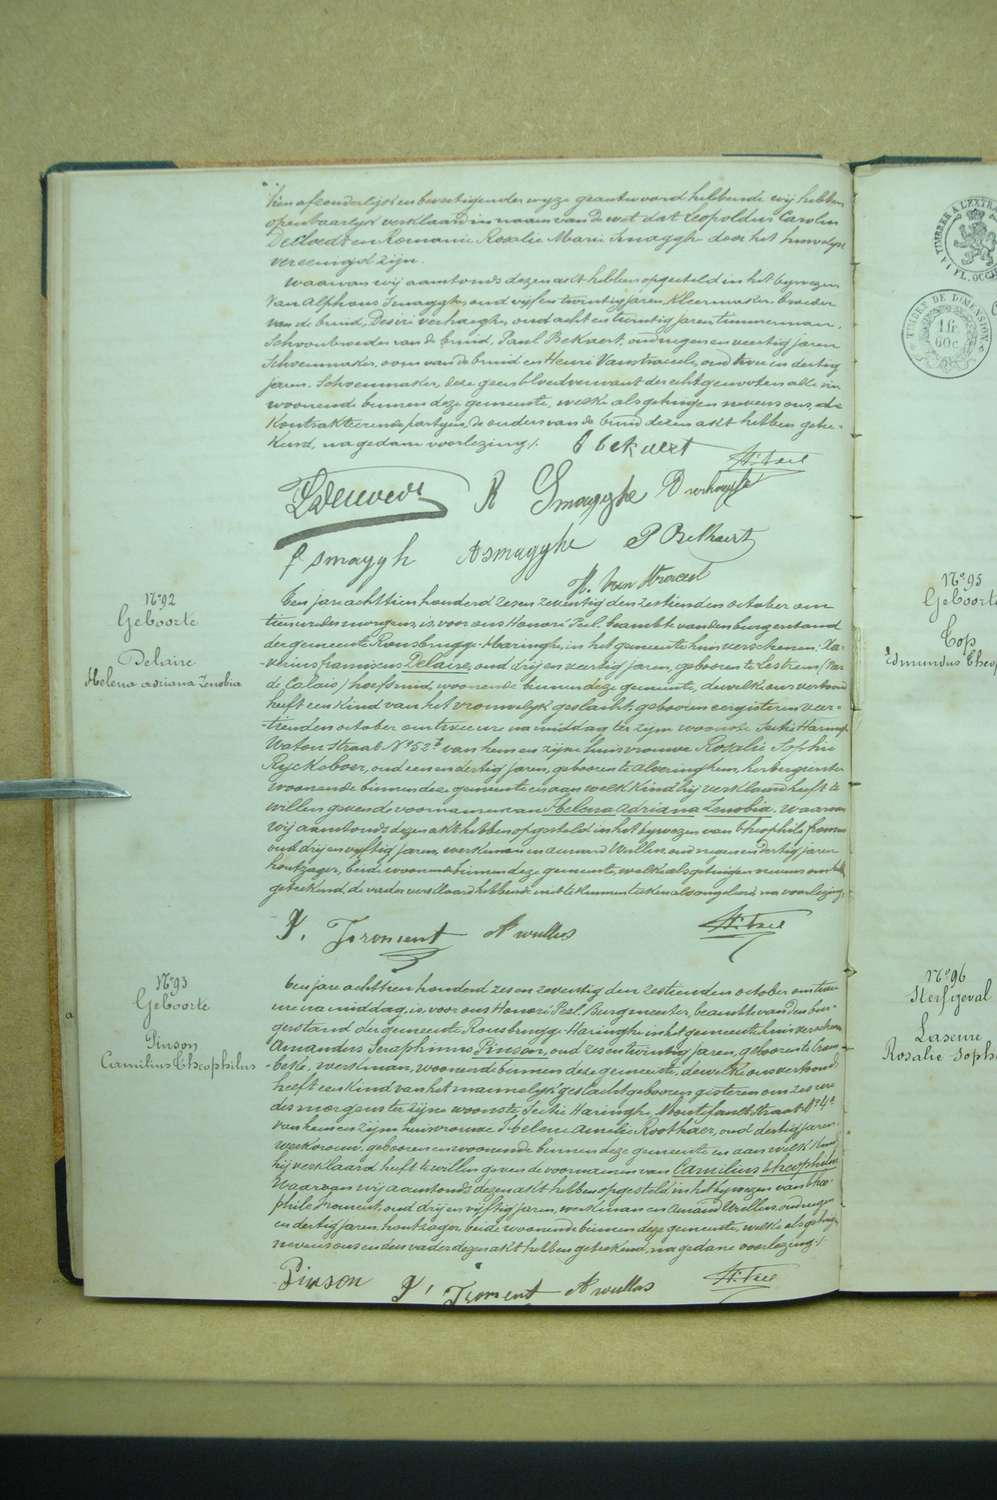 hen afzonderlijk en bevestigender wyze geantwoord hebbende wij hebben
openbaarlijk verklaard in naam van de wet dat Leopoldus Carolus
en Romanie Rosalie Marie Smagghe door het huwelijk
vereenigd zijn.
Waarvan wij aanstonds dezen akt hebben opgesteld in het bywezen
van Alphons Smagghe, oud vijf en twintig jaren, Kleermaker, broeder
van de bruid, Desiré verhaeghe, oud acht en twintig jaren, timmerman,
Schoonbroeder van de bruid, Paul Bekaert, oud negen en veertig jaren
Schoenmaker, oom van de bruid en Henri Vanstraceele, oud twee en dertig
jaren, Schoenmaker, deze geen bloedverwant der echtgenooten alle vier
woonende binnen deze gemeente, welke als getuigen nevens ons, de
Kontrakteerende partyen, de ouders van de bruid dezen akt hebben getee-
kend, na gedane voorlezing /.
b bekaert
R Smagghe D verhaeghe
f smaggh A smagghe P Bekaert
H. Van
N° 92
Geboorte
Delaire
Helena adriana Zenobia
Ten jare achttien honderd zes en zeventig den zestienden october om
tien ure des morgens, is voor ons Honoré Peel, beambte van den burgerstand
der gemeente Rousbrugge-Haringhe, in het gemeentehuis verschenen, Xa-
verius franciscus Delaire, oud drij en veertig jaren, geboren te Lestrem (Pas
de Calais) hoefsmid, woonende binnen deze gemeente, dewelke ons vertoond
heeft een kind van het vrouwelyk geslacht, geboren eergisteren veer-
tienden october om twee ure na middag ter zijner woonste Sectie Haringhe
Watou straat N° 52 van hem en zijne huisvrouwe Rosalie Sophie
Ryckeboer, oud een en dertig jaren, geboren te alveringhem, herbergierster
woonende binnen deze gemeente en aan welk Kind hij verklaard heeft te
willen geven de voornamen van Helena adriana Zenobia. Waarvan
wij aanstonds dezen akt hebben opgesteld in het bywezen van theophile froment
oud drij en vijftig jaren, werkman en amand Wullus, oud negen en dertig jaren
houtzager, beide woonende binnen deze gemeente, welke als getuigen nevens ons hebben
geteekend, de vader verklaard hebbende niet te kunnen teeken als ongeleerd, na voorlezing
T. froment A wullus H. Peel
N° 93
Geboorte
Pinson
Camilius Theophilus
Ten jare achttien honderd zes en zeventig den zestienden october om twee
ure na middag, is voor ons Honoré Peel, Burgmeester, beambte van den bur-
gerstand der gemeente Rousbrugge-Haringhe in het gemeentehuis verschenen
Amandus Seraphinus Pinson, oud zes en twintig jaren, geboren te Crom-
beke, werkman, woonende binnen deze gemeente, dewelke ons vertoond
heeft een kind van het mannelijk geslacht geboren gisteren om zes ure
des morgens ter zijne woonste, Sectie Haringhe, straat N° 4
van hem en zijne huisvrouwe Helene Amelie Roothaer, oud dertig jaren
werkvrouw, geboren en woonende binnen deze gemeente en aan welk Kind
hij verklaard heeft te willen geven de voornamen van Camilius theophilus
Waarvan wij aanstonds dezen akt hebben opgesteld in het bywezen van theo-
phile froment, oud drij en vijftig jaren, werkman en Amand Wullus, oud negen
en dertig jaren, houtzager, beide woonende binnen deze gemeente, welke als getuigen
nevens ons en den vader dezen akt hebben geteekend, na gedane voorlezing /.
Pinson T. froment A wullus H. Peel
TIMBRE A L'EXTRA
1 FL. OCC
TIMBRE DE DIMENSION
1 fr
60 c
N° 95
Geboorte
Top
Edmundus Theop
N° 96
Sterfgeval
Laseure
Rosalie Soph